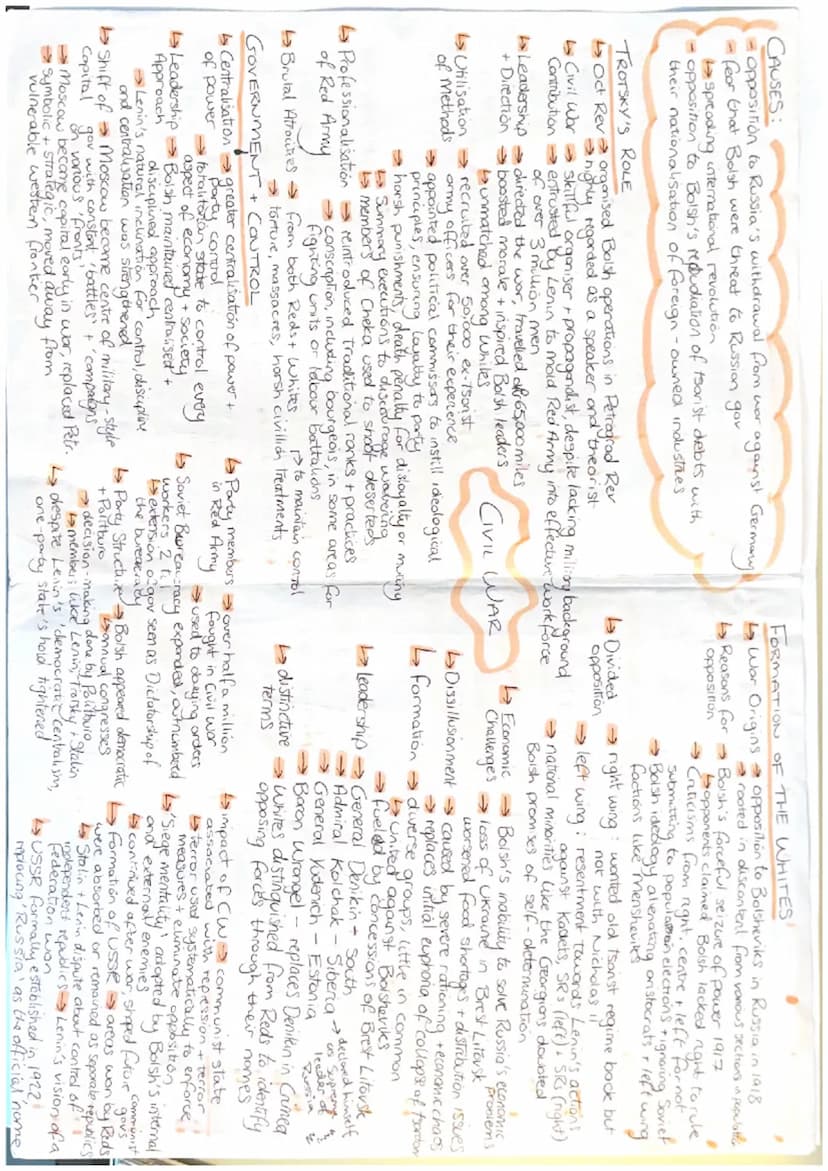 CAUSES:
- opposition to Russia's withdrawal from war against Germany
- fear that Bolsh were threat to Russian gov
↳ spreading international revolution
- opposition to Bolsh's repudiation of tsarist debts with
their nationalisation of foreign-owned industries
TROTSKY'S ROLE
↳ Oct Rev → organised Bolsh operations in Petrograd Rev
→ highly regarded as a speaker and theorist
↳ Civil War → skillful organiser + propagandist, despite lacking military background
Contribution → entrusted by Lenin to mold Red Army into effective workforce
of over 3 million men
↳ Leadership → directed the war, travelled 65,000 miles
+ Direction → boosted morale + inspired Bolsh leaders
↳ unmatched among Whites
↳ Utilisation → recruited over 50,000 ex-Tsarist
of Methods army officers for their experience
→ appointed political commissars to instill ideological
principles, ensuring loyalty to party
→ harsh punishments, death penalty for disloyalty or mutiny
↳ summary executions to discourage wavering
→ members of Cheka used to shoot deserters
↳ Professionalisation → reintroduced traditional ranks + practices
of Red Army → conscription, including bourgeois, in some areas for
fighting units or labour battalions
↳ Brutal Atrocities → from both Reds + Whites → to maintain control
→ torture, massacres, harsh civilian treatments
GOVERNMENT + CONTROL
↳ Centralisation → greater centralisation of power +
of power party control
→ totalitarian state to control every
aspect of economy + society
↳ Leadership → Bolsh maintained centralised +
Approach disciplined approach
→ Lenin's natural inclination for control, discipline
and centralisation was strengthened
↳ Shift of → Moscow became centre of military-style
Capital gov with constant 'battles' + 'campaigns'
on various 'fronts'
→ Moscow became capital early in war, replaced Petr.
→ symbolic + strategic, moved away from
vulnerable western frontier
CIVIL WAR
↳ Party members → over half a million
in Red Army fought in Civil War
→ used to obeying orders
↳ Soviet Bureaucracy expanded, outnumbered
workers 2 to 1
↳ extension of gov seen as Dictatorship of
the bureaucracy
↳ Party Structure → Bolsh appeared democratic
+ Politburo ↳ annual congresses
→ decision-making done by Politburo
↳ members like Lenin, Trotsky + Stalin
↳ despite Lenin's 'democratic centralism,'
one-party state's hold tightened
FORMATION OF THE WHITES
↳ War Origins → opposition to Bolsheviks in Russia in 1918
→ rooted in discontent from various sections of population
↳ Reasons for → Bolsh's forceful seizure of power 1917
opposition ↳ opponents claimed Bolsh lacked right to rule
→ Criticisms from right, centre + left for not
submitting to population elections + ignoring Soviet
→ Bolsh ideology alienating aristocrats + left wing
factions like Mensheviks
↳ Divided → right wing: wanted old tsarist regime back but
opposition not with Nicholas II
→ left wing: resentment towards Lenin's actions
against Kadets, SRs (left) + SRs (right)
→ national minorities like the Georgians doubted
Bolsh promises of self-determination
↳ Economic → Bolsh's inability to solve Russia's economic
Challenges problems
→ loss of Ukraine in Brest Litovsk
worsened food shortages + distribution issues
↳ Dissillusionment → caused by severe rationing + economic chaos
→ replaces initial euphoria of collapse of tsardom
↳ Formation → diverse groups, little in common
↳ united against Bolsheviks
→ fuelled by concessions of Brest Litovsk
↳ leadership → General Denikin - South
→ Admiral Kolchak - Siberia → declared himself
as Supreme
leader of
Russia
→ General Yudenich - Estonia
→ Baron Wrangel - replaces Denikin in Crimea
↳ distinctive → Whites distinguished from Reds to identify
terms opposing facts through their names
↳ impact of CW → communist state
associated with repression + terror
→ terror used systematically to enforce
measures + eliminate opposition
↳ 'Siege mentality' adopted by Bolsh's internal
and external enemies
↳ continued after war, shaped future communist
govs
↳ Formation of USSR → areas won by Reds
were absorbed or remained as separate republics
↳ Stalin + Lenin dispute about control of
independent republics → Lenin's vision of a
federation won
↳ USSR formally established in 1922
replacing 'Russia' as the official name